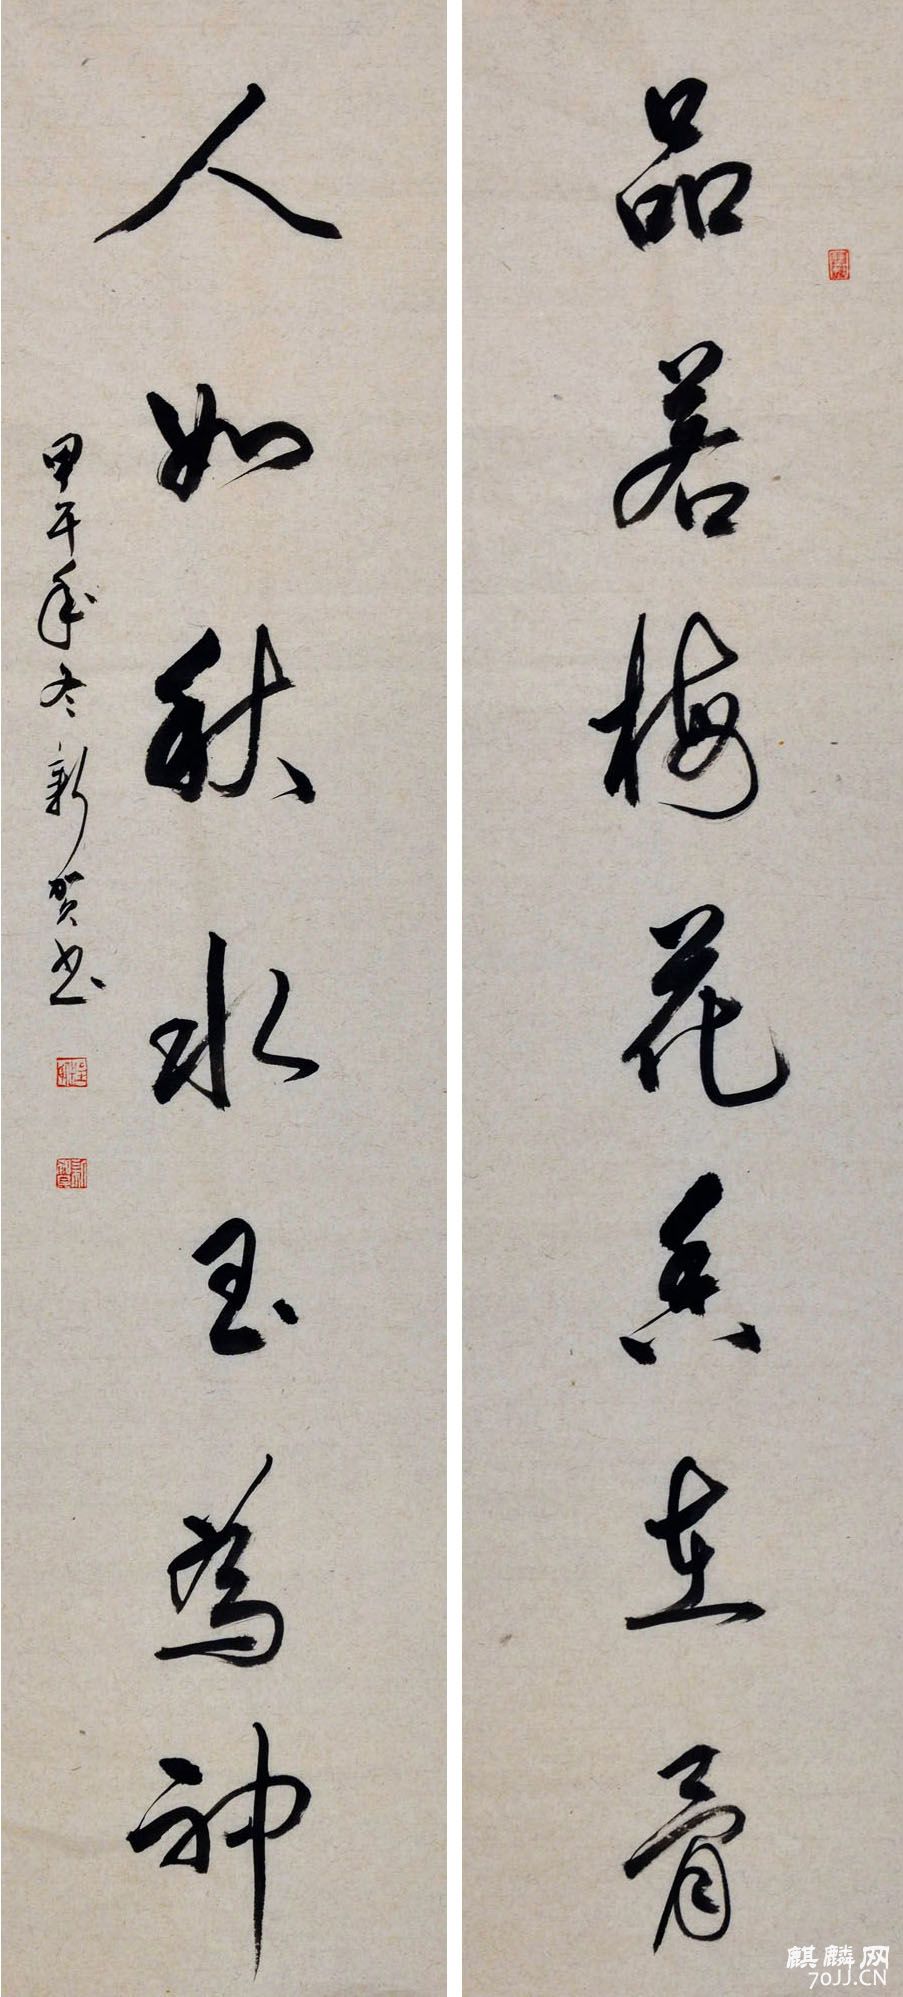 品若梅花香在骨
人如秋水玉為神
甲午年冬新贺书
麒麟网
70JJ.CN